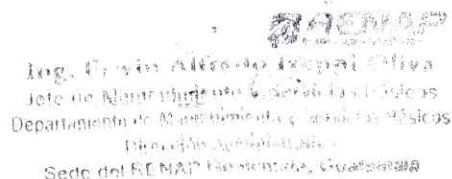 RENAP
Ing. Ervin Alfredo Oliva
Jefe de Mantenimiento y Servicios Básicos
Departamento de Mantenimiento y Servicios Básicos
Dirección Administrativa
Sede del RENAP Guatemala, Guatemala